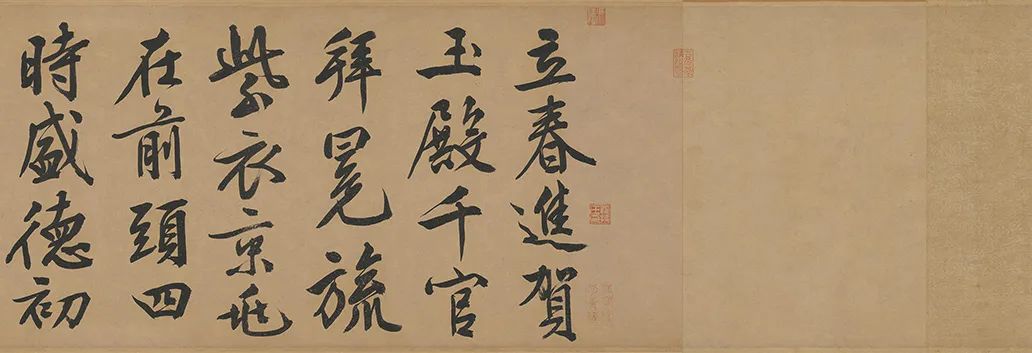 立春進賀
玉殿千官
拜冕旒
紫衣京兆
在前頭四
時盛德初